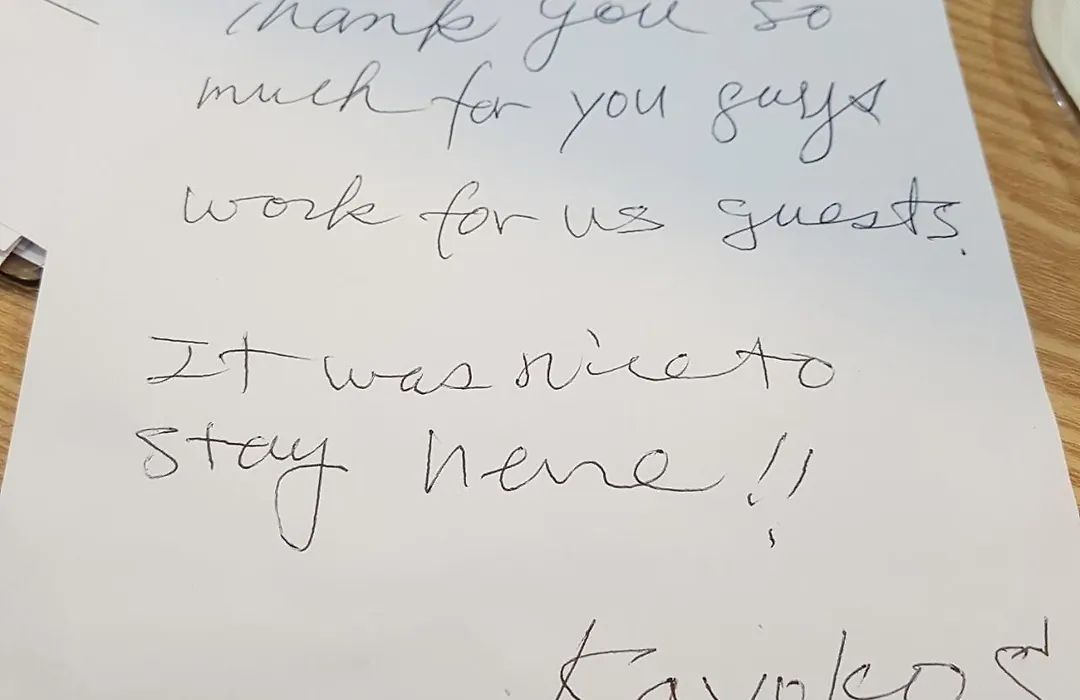 Thank you so
much for you guys
work for us guests.
It was nice to
stay here!!
Kayoko S